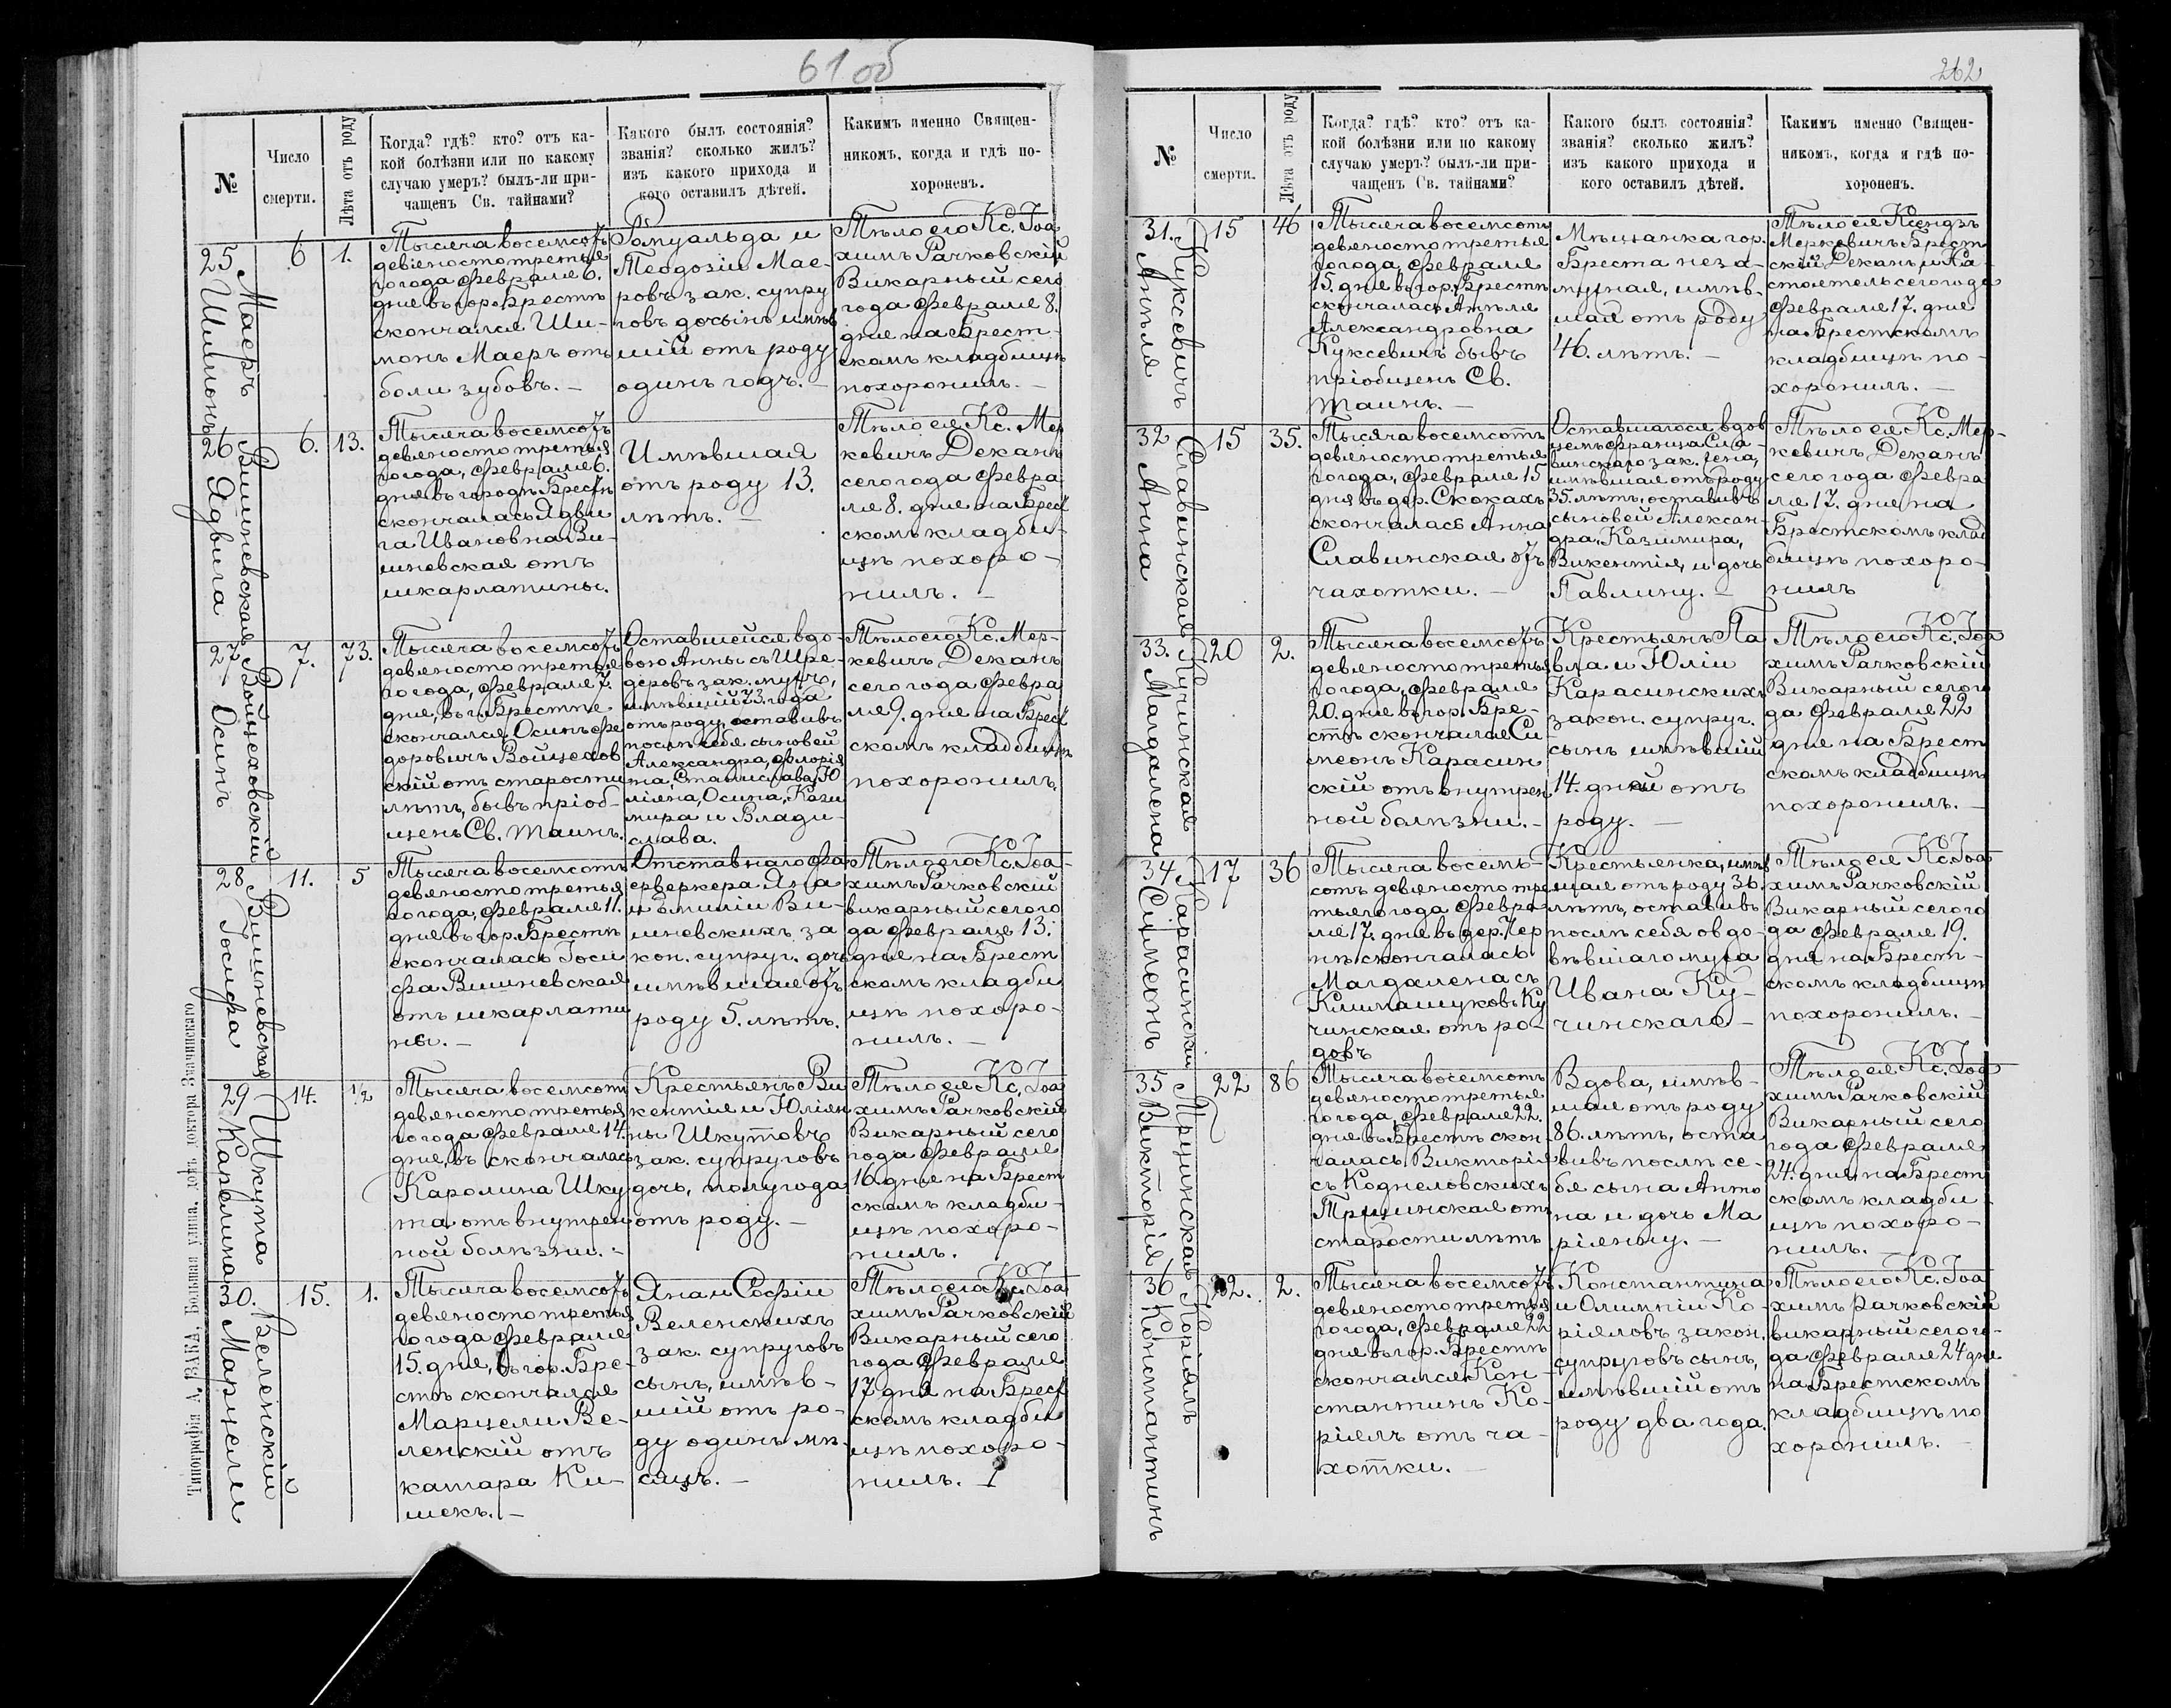 61 об
№
Число
смерти.
Лѣта отъ роду
Когда? гдѣ? кто? отъ ка-
кой болѣзни или по какому
случаю умеръ? былъ-ли при-
чащенъ Св. тайнами?
Какого былъ состоянія?
званія? сколько жилъ?
изъ какого прихода и
кого оставилъ дѣтей.
Какимъ именно Священ-
никомъ, когда и гдѣ по-
хороненъ.
25
Маеръ
Шимонъ
6
1.
Тысяча восемсотъ
девяносто третья
го года Февраля 6.
дня въ гор. Брестѣ
скончался Ши-
монъ Маеръ отъ
боли зубовъ. —
Ромуальда и
Теодозіи Мае-
ровъ зак. супру
говъ сынъ имѣв
шій отъ роду
одинъ годъ. —
Тѣло его Кс. Іоа
химъ Рачковскій
Викарный сего
года Февраля 8.
дня на Брест-
скомъ кладбищѣ
похоронилъ. —
26
Вишневская
Ядвига
6.
13.
Тысяча восемсотъ
девяносто третья
го года, Февраля 6.
дня въ городѣ Брестѣ
скончалась Ядви
га Ивановна Ви-
шневская отъ
шкарлатины.
Имѣвшая
отъ роду 13.
лѣтъ. —
Тѣло ея Кс. Мер
кевичъ Деканъ
сего года Февра
ля 8. дня на Брест
скомъ кладби-
щѣ похоро-
нилъ. —
27
Войцеховскій
Осипъ
7.
73.
Тысяча восемсотъ
девяносто третья
го года, Февраля 7.
дня, въ г. Брестѣ
скончался Осипъ Фе
доровичъ Войцехов
скій отъ старости
лѣтъ, бывъ пріоб-
щенъ Св. Таинъ.
Оставшейся вдо-
вою Анны съ Шре-
деровъ зак. мужъ,
имѣвшій 73. года
отъ роду, оставивъ
послѣ себя сыновей
Александра, Флорія
на, Станислава, Ю
ліяна, Осипа, Кази
мира и Влади-
слава.
Тѣло его Кс. Мер-
кевичъ Деканъ
сего года Февра
ля 9. дня на Брест
скомъ кладбищѣ
похоронилъ.
28
Вишневская
Іосифа
11.
5
Тысяча восемсотъ
девяносто третья
го года, Февраля 11.
дня въ гор. Брестѣ
скончалась Іоси
фа Вишневская
отъ шкарлати
ны. —
Отставнаго Фе
ерверкера Яна
и Эмиліи Ви-
шневскихъ за
кон. супруг. дочь
имѣвшая отъ
роду 5. лѣтъ.
Тѣло его Кс. Іоа-
химъ Рачковскій
викарный сего го
да Февраля 13.
дня на Брест
скомъ кладби
щѣ похоро-
нилъ. —
29
Шкута
Каролина
14.
1/2
Тысяча восемсотъ
девяносто третья
го года Февраля 14.
дня, въ скончалась
Каролина Шку
та отъ внутрен
ной болѣзни. -
Крестьянъ Ви
кентія и Юліян
ны Шкутовъ
зак. супруговъ
дочь, полугода
отъ роду. —
Тѣло ея Кс. Іоа
химъ Рачковскій
Викарный сего
года Февраля
16. дня на Брест
скомъ кладби-
щѣ похоро-
нилъ.
30.
Веленскій
Марцели
15.
1.
Тысяча восемсотъ
девяносто третья
го года Февраля
15. дня, въ гор. Бре-
стѣ скончался
Марцели Ве-
ленскій отъ
катара Ки-
шекъ. —
Яна и Софіи
Веленскихъ
зак. супруговъ
сынъ, имѣв-
шій отъ ро-
ду одинъ мѣ-
сяцъ. —
Тѣло его Кс. Іоа
химъ Рачковскій
Викарный сего
года Февраля
17 дня на Брест
скомъ кладби
щѣ похоро-
нилъ.
Типографія А. ЗАКА, Большая улица, домъ доктора Значинскаго
262
№
Число
смерти.
Лѣта отъ роду
Когда? гдѣ? кто? отъ ка-
кой болѣзни или по какому
случаю умеръ? былъ-ли при-
чащенъ Св. тайнами?
Какого былъ состоянія?
званія? сколько жилъ?
изъ какого прихода и
кого оставилъ дѣтей.
Какимъ именно Священ-
никомъ, когда и гдѣ по-
хороненъ.
31.
Куксевичъ
Анѣля
15
46
Тысяча восемсотъ
девяносто третья
го года, Февраля
15. дня въ гор. Брестѣ
скончалась Анѣля
Александровна
Куксевичъ бывъ
пріобщенъ Св.
Таинъ. —
Мѣщанка гор.
Бреста неза-
мужняя, имѣв-
шая отъ роду
46. лѣтъ. —
Тѣло ея Ксендзъ
Меркевичъ Брест
скій Деканъ и На-
стоятель сего года
Февраля 17. дня
на Брестскомъ
кладбищѣ по-
хоронилъ. —
32
Славинская
Анна
15
35.
Тысяча восемсотъ
девяносто третья
го года, Февраля 15
дня въ дер. Скокахъ
скончалась Анна
Славинская отъ
чахотки. —
Оставшагося вдов
цемъ Франца Сла-
винскаго зак. жена,
имѣвшая отъ роду
35. лѣтъ, оставивъ
сыновей Алексан-
дра, Казимира,
Викентія, и дочь
Павлину. —
Тѣло ея Кс. Мер-
кевичъ Деканъ
сего года Февра
ля 17. дня на
Брестскомъ клад
бищѣ похоро-
нилъ
33.
Кучинская
Магдалена
20
2.
Тысяча восемсотъ
девяносто третья
го года, Февраля
20. дня въ гор. Бре-
стѣ скончался Си
меонъ Карасин
скій отъ внутрен
ной болѣзни. —
Крестьянъ Па
вла и Юліи
Карасинскихъ
закон. супруг.
сынъ имѣвшій
14. дней отъ
роду. —
Тѣло его Кс. Іоа
химъ Рачковскій
Викарный сего го
да Февраля 22
дня на Брест
скомъ кладбищѣ
похоронилъ. —
34
Карасинскій
Сіѵмеонъ
17
36
Тысяча восемь-
сотъ девяносто тре
тьяго года Февра
ля 17. дня въ дер. Чер
нѣ скончалась
Магдалена съ
Климашуковъ Ку
чинская отъ ро-
довъ
Крестьянка, имѣв
шая отъ роду 36.
лѣтъ, оставивъ
послѣ себя овдо-
вѣвшаго мужа
Ивана Ку-
чинскаго —
Тѣло ея Кс. Іоа
химъ Рачковскій
Викарный сего го
да Февраля 19.
дня на Брест-
скомъ кладбищѣ
похоронилъ. —
35
Трщинская
Викторія
22
86
Тысяча восемсотъ
девяносто третья
го года, Февраля 22.
дня въ Брестѣ скон
чалась Викторія
съ Коднеловскихъ
Трщинская отъ
старости лѣтъ
Вдова, имѣв-
шая отъ роду
86. лѣтъ, оста
вивъ послѣ се-
бя сына Анто
на и дочь Ма
ріянну. —
Тѣло ея Кс. Іоа
химъ Рачковскій
Викарный сего
года Февраля
24. дня на Брест
скомъ кладби-
щѣ похоро-
нилъ. —
36
Коріялъ
Константинъ
22.
2.
Тысяча восемсотъ
девяносто третья
го года, Февраля 22
дня въ гор. Брестѣ
скончался Кон-
стантинъ Ко-
ріялъ отъ ча-
хотки. —
Константина
и Олимпіи Ко-
ріяловъ закон.
супруговъ сынъ,
имѣвшій отъ
роду два года.
Тѣло его Кс. Іоа
химъ Рачковскій
викарный сего го-
да Февраля 24 дня
на Брестскомъ
кладбищѣ по
хоронилъ. —